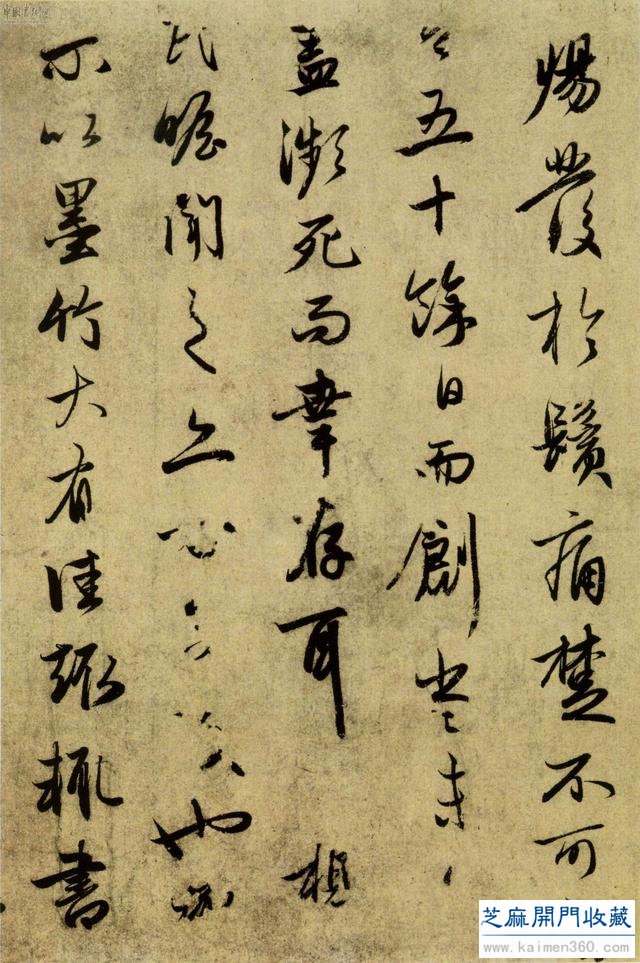 瘍發於鬢痛楚不可
今五十餘日而創尚未
盡瀕死而幸存耳想
民瞻聞之亦必
也所
示以墨竹大有佳趣輒書
芝麻開門收藏
www.kaimen360.com